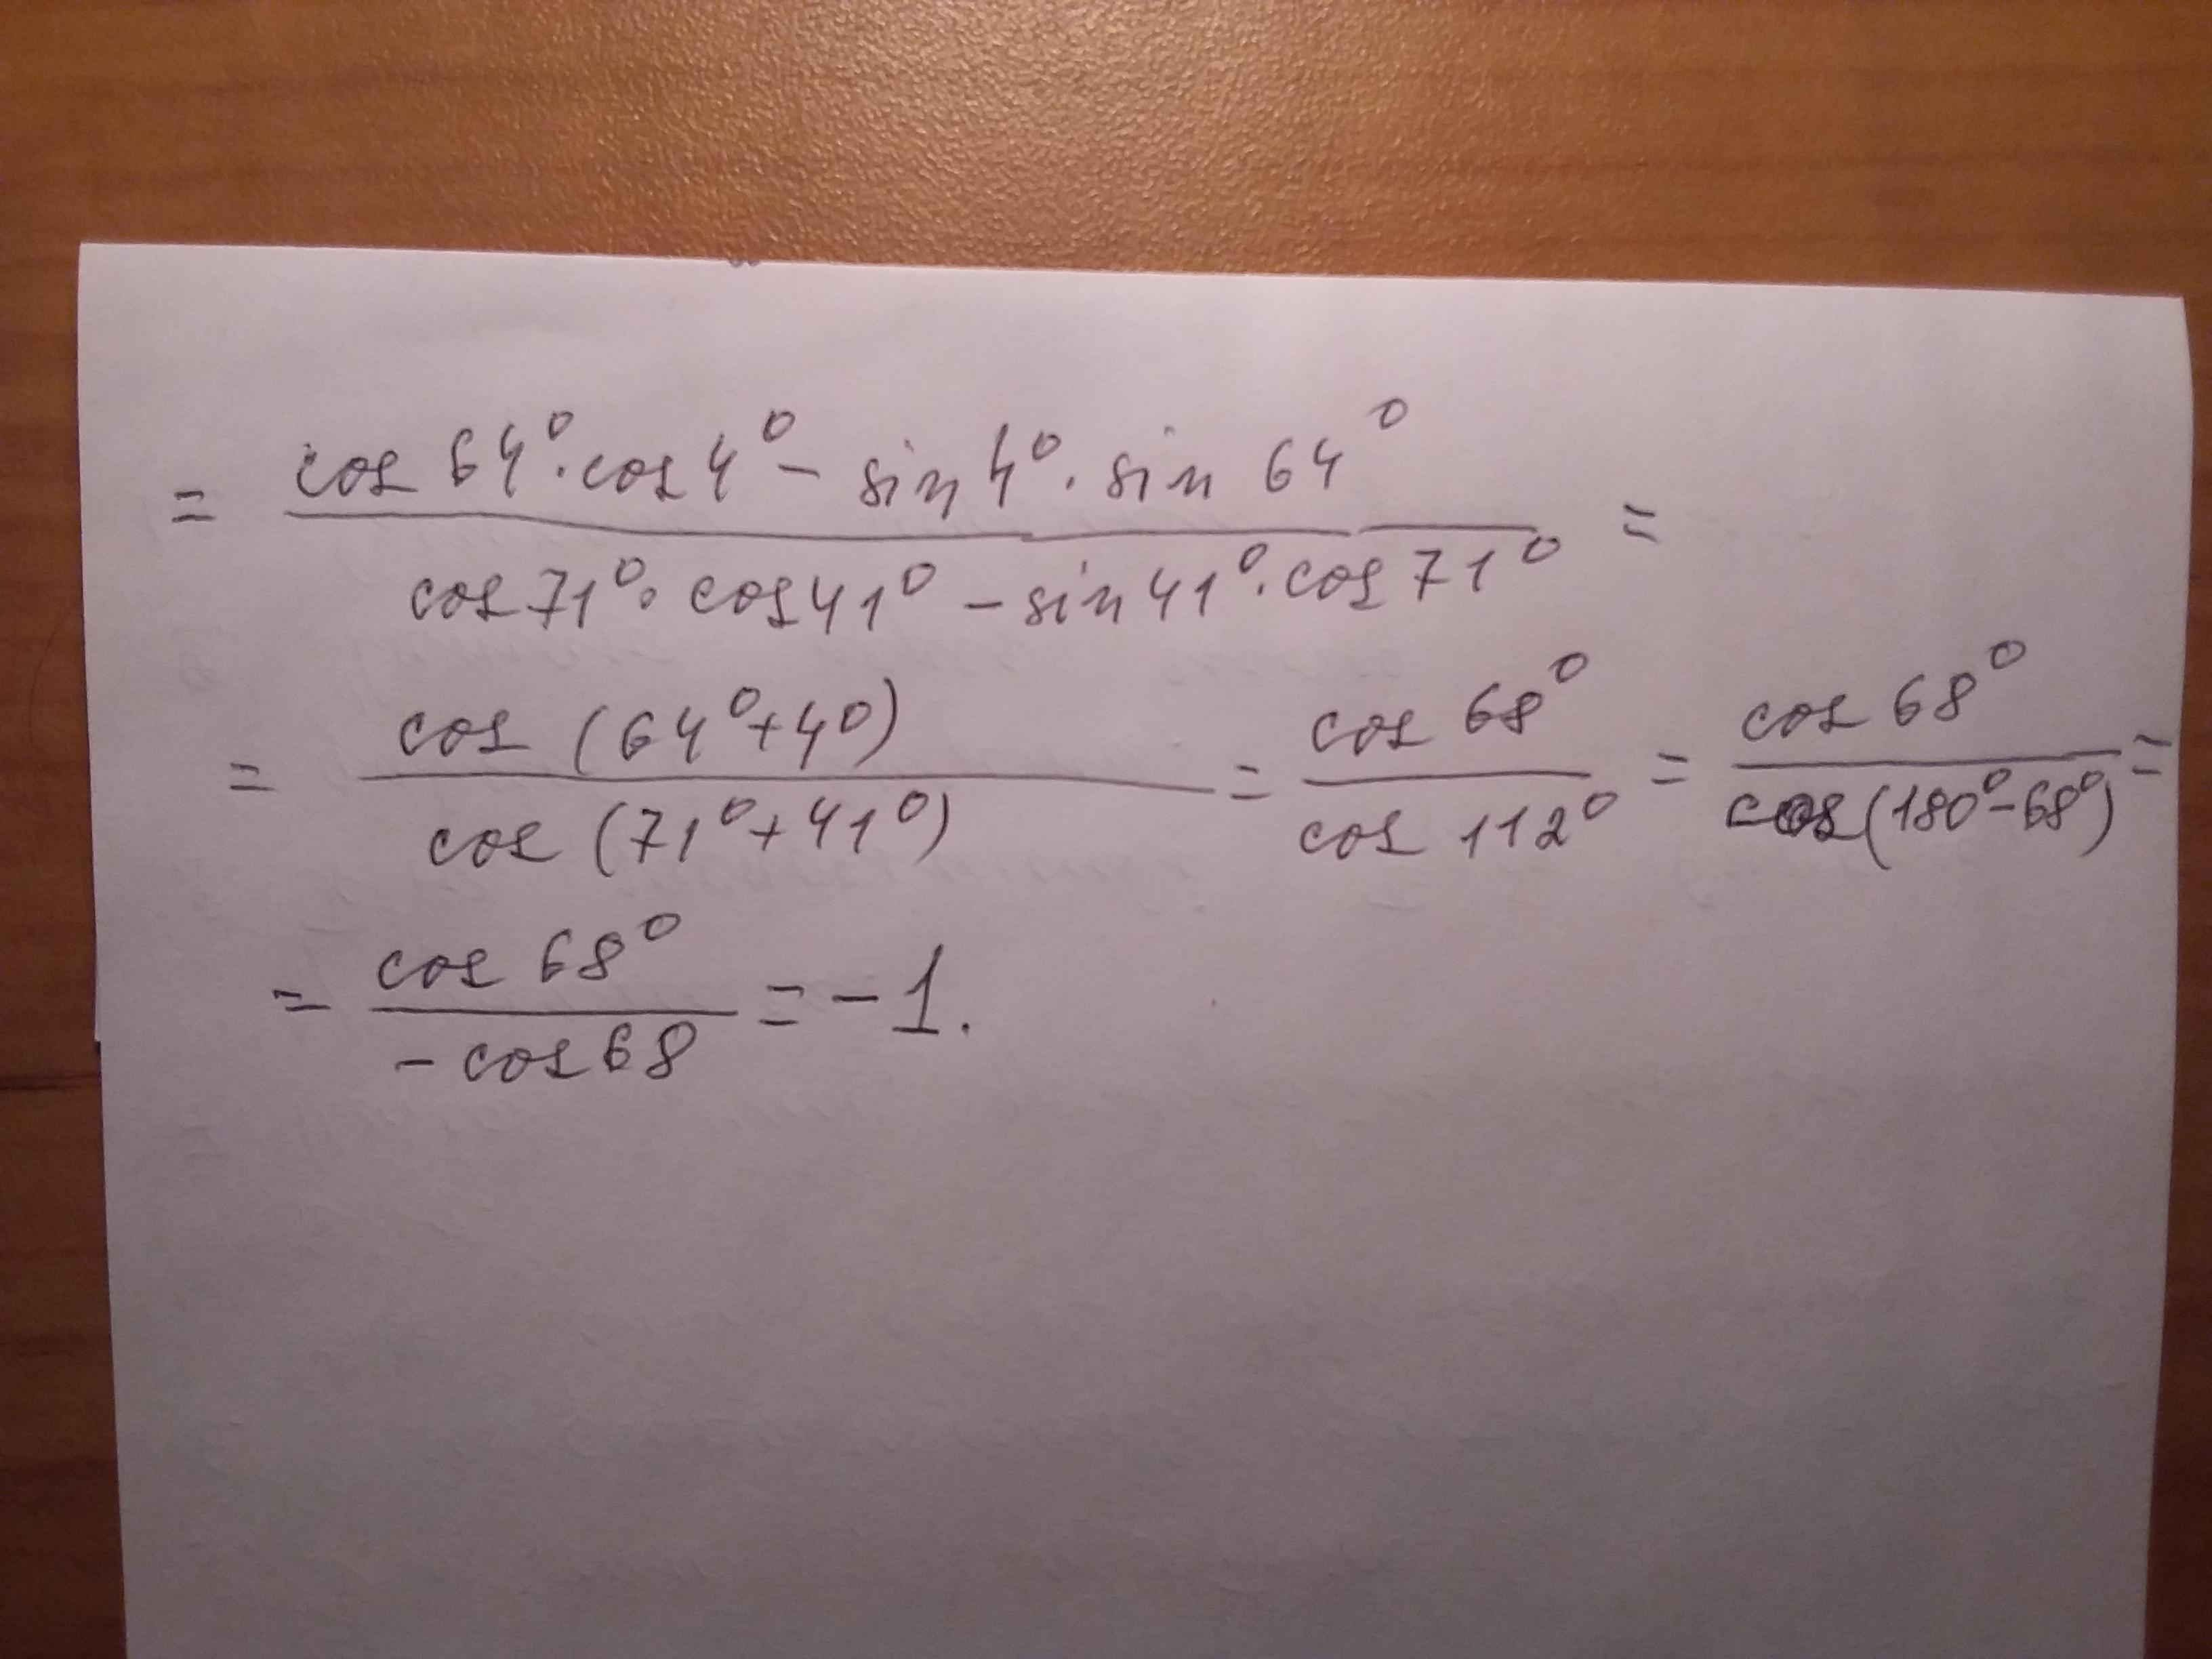 = (cos 64° · cos 4° - sin 4° · sin 64°) / (cos 71° · cos 41° - sin 41° · cos 71°) =
= cos (64° + 4°) / cos (71° + 41°) = cos 68° / cos 112° = cos 68° / cos (180° - 68°) =
= cos 68° / - cos 68 = - 1.